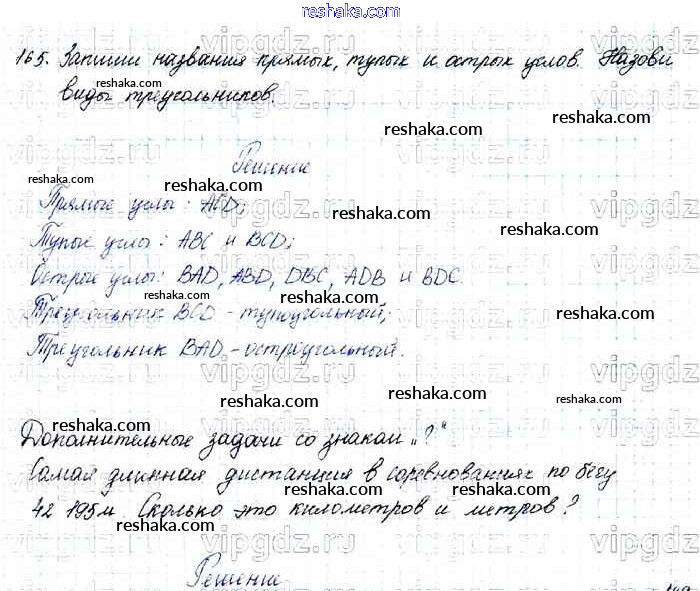 reshaka.com
165. Запиши названия прямых, тупых и острых углов. Назови
виды треугольников.
reshaka.com
reshaka.com
Решение
reshaka.com
reshaka.com
reshaka.com
Прямые углы: ACD;
reshaka.com
Тупые углы: ABC и BCD;
reshaka.com
Острые углы: BAD, ABD, DBC, ADB и BDC.
reshaka.com
reshaka.com
reshaka.com
Треугольник BCD - тупоугольный;
Треугольник BAD - остроугольный.
reshaka.com
reshaka.com
reshaka.com
Дополнительные задачи со знаком „?“
Самая длинная дистанция в соревнованиях по бегу
reshaka.com
reshaka.com
42 195 м. Сколько это километров и метров?
reshaka.com
Решение
vipgdz.ru